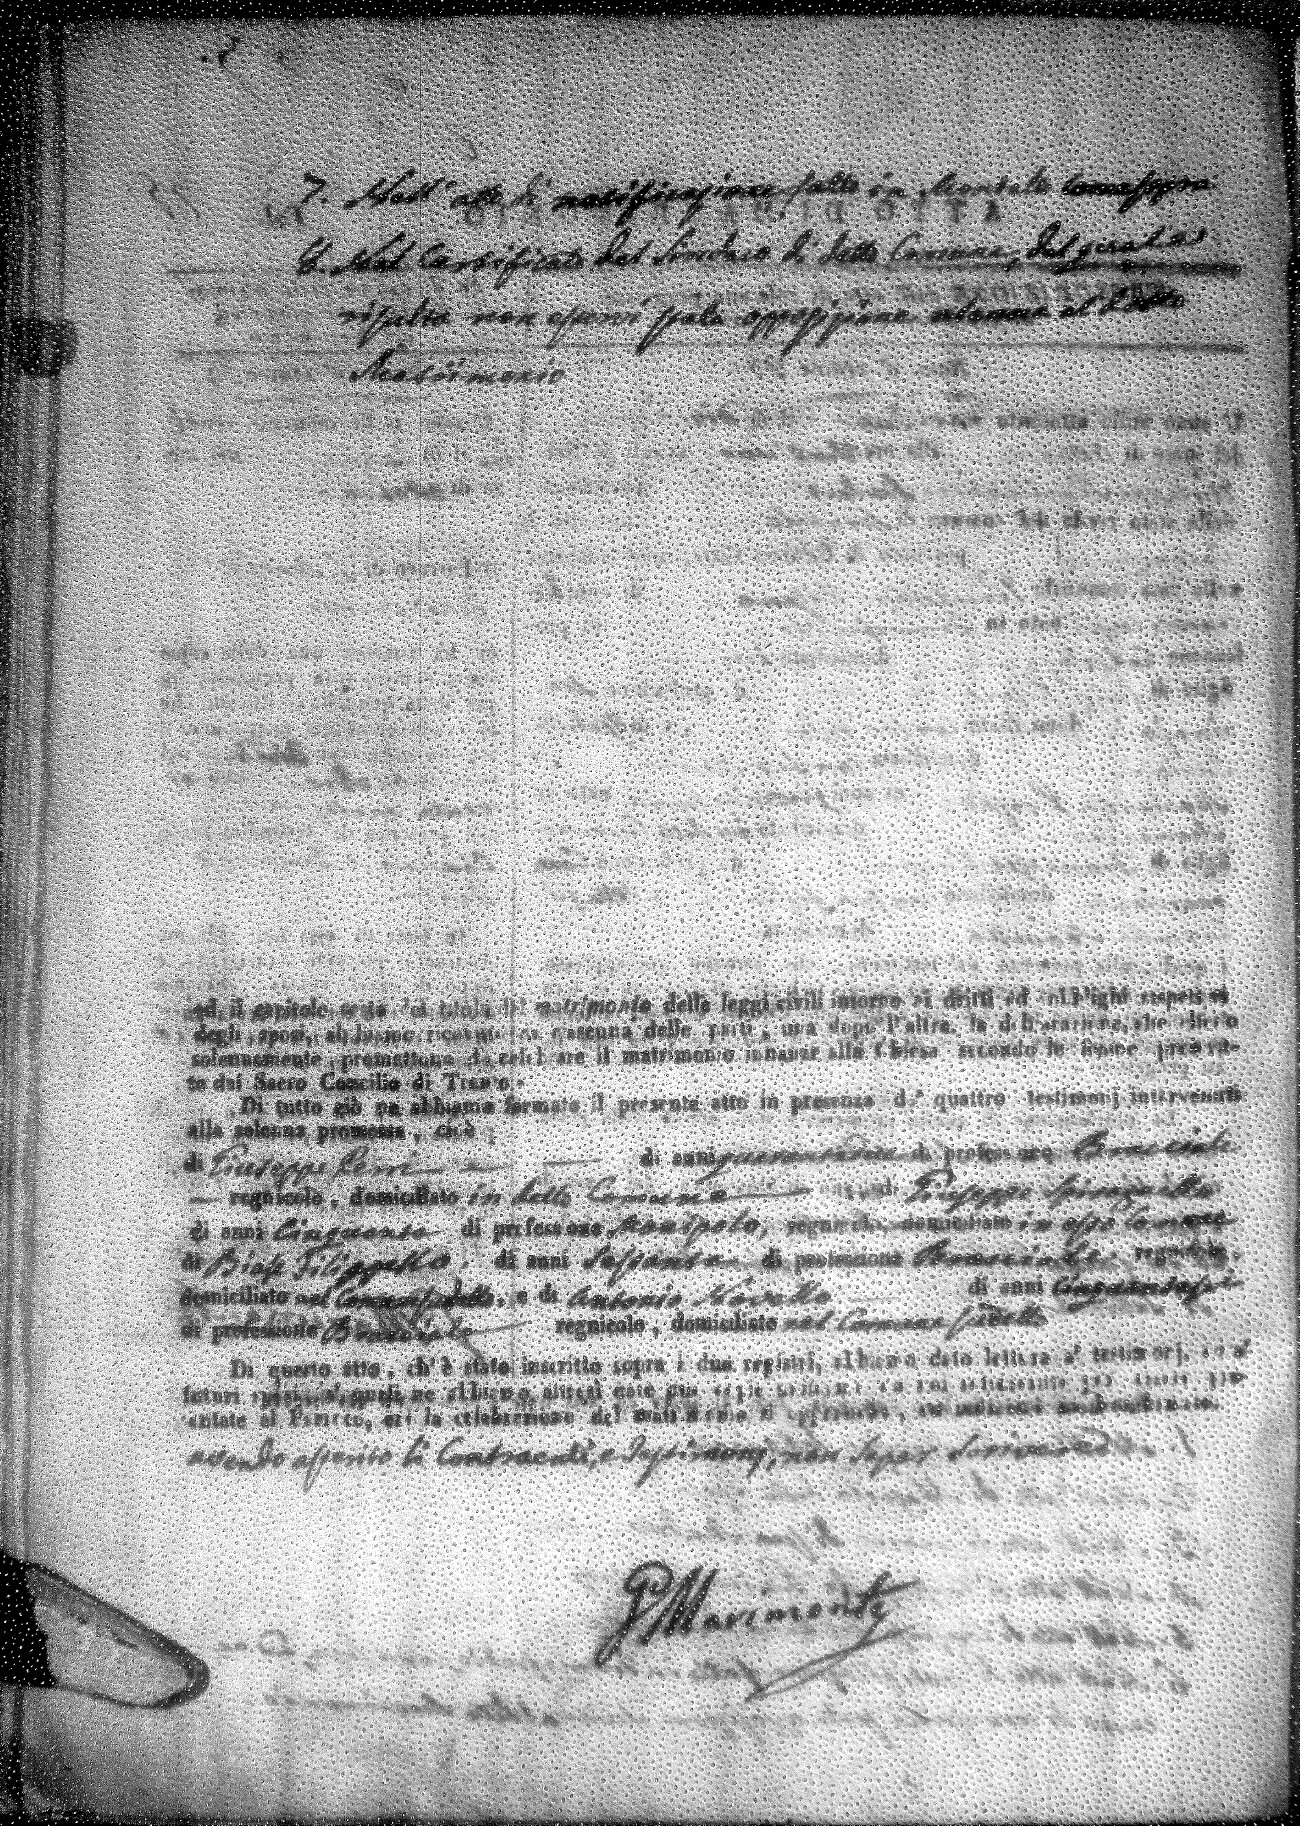 7. Nell' atto di notificazione fatto in Montalto come sopra
8. Nel Certificato del Sindaco di detto Comune, dal quale
risulta non esservi stata opposizione alcuna al detto
Matrimonio
ed il capitolo sesto del titolo del matrimonio delle leggi civili intorno ai dritti ed obblighi rispettivi
degli sposi, abbiamo ricevuto da ciascuna delle parti, una dopo l'altra, la dichiarazione, che elleno
solennemente promettono di celebrare il matrimonio innanzi alla Chiesa secondo le forme prescrit-
te dal Sacro Concilio di Trento.
Di tutto ciò ne abbiamo formato il presente atto in presenza de' quattro testimonj intervenuti
alla solenne promessa, cioè
di Giuseppe di anni quarantatre di professione Bracciale
regnicolo, domiciliato in detto Comune di Giuseppe
di anni Cinquanta di professione regnicolo, domiciliato in esso Comune
di Biase Filippello, di anni Sessanta di professione Bracciale, regnicolo,
domiciliato nel Comune sudetto, e di Antonio Novello di anni Cinquantasei
di professione Bracciale regnicolo, domiciliato nel Comune sudetto
Di questo atto, ch'è stato inscritto sopra i due registri, abbiamo dato lettura a' testimonj, ed a'
futuri sposi, a' quali ne abbiamo altresì date due copie uniformi da noi sottoscritte per essere pre-
sentate al Parroco, cui la celebrazione del matrimonio si appartiene,
avendo asserito li Contraenti, e Testimonj, non saper scrivere
Marimonte